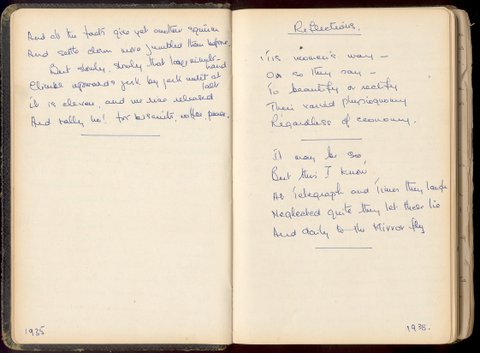 And all the facts give yet another squirm
And settle down more jumbled than before.
But slowly, slowly that large minute-hand
Climbs upwards jerk by jerk until at last
it is eleven, and we are released
And tally ho! for biscuits, coffee, peace.
1935
Reflections.
'Tis women's way –
Or so they say –
To beautify or rectify
Their varied physiognomy
Regardless of economy.
It may be so,
But this I know,
At Telegraph and Times they laugh
Neglected quite they let them lie
And daily to the Mirror fly
1938.